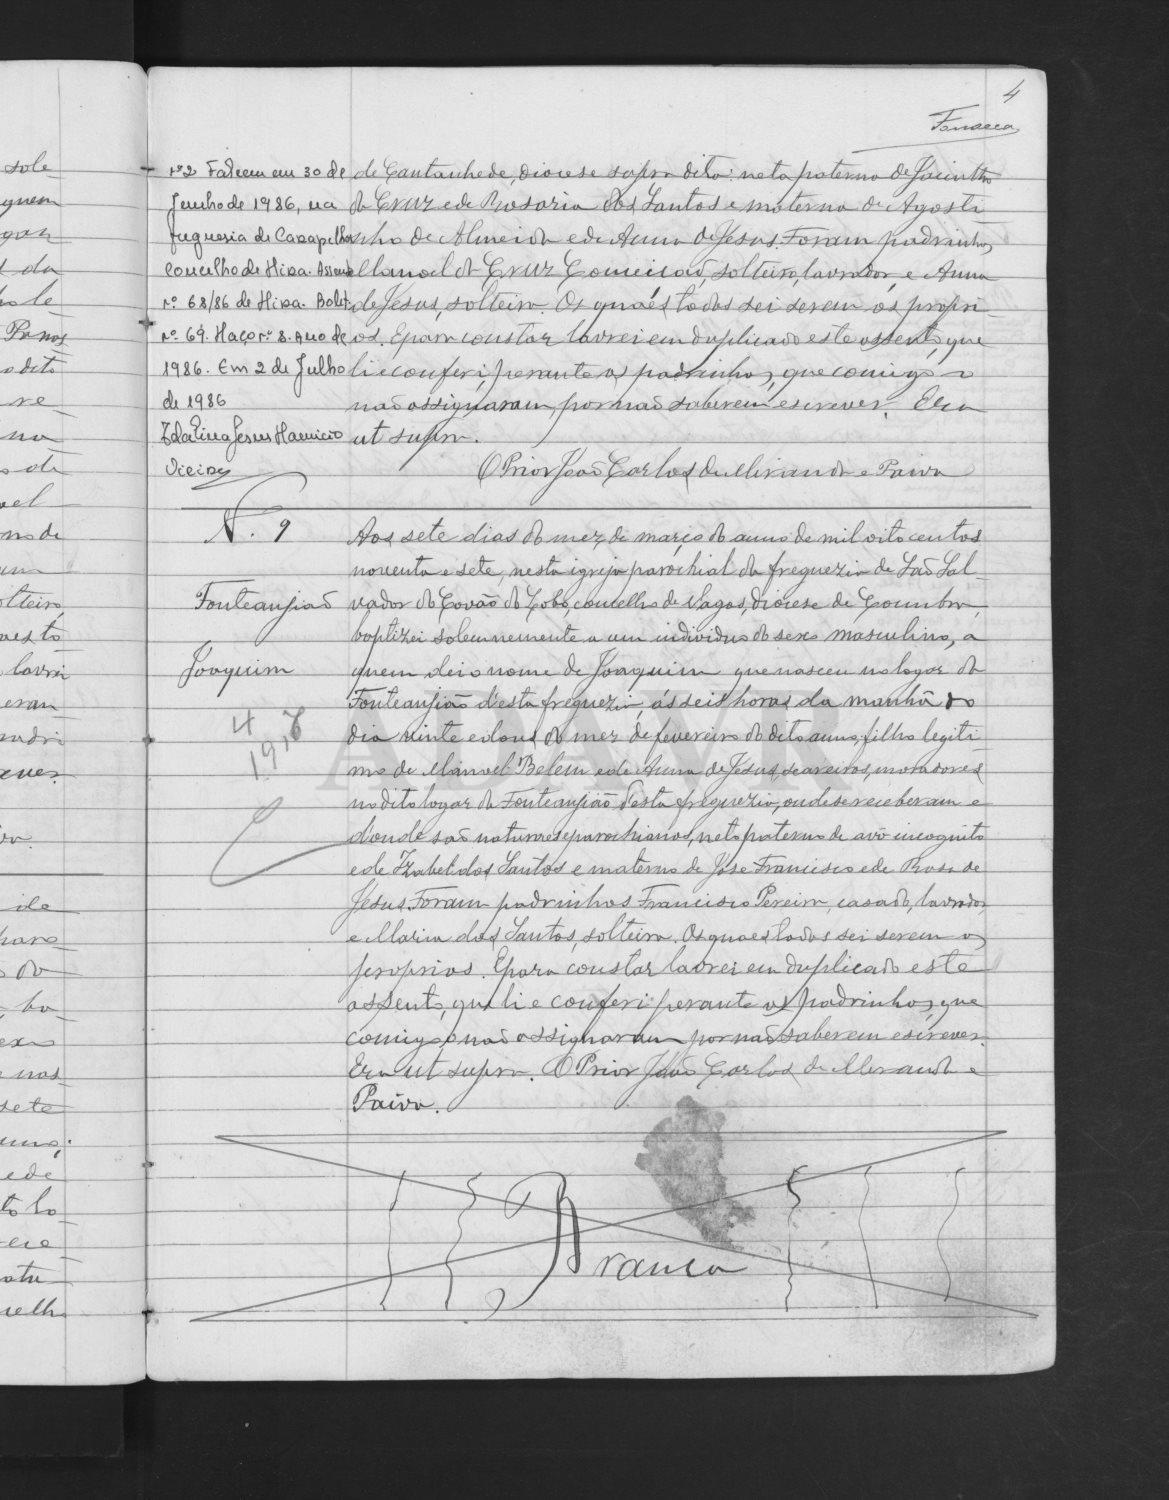 4
Fonseca
nº2 Faleceu em 30 de
Junho de 1986, na
freguesia de Carapelhos
concelho de Mira. Assento
nº 68/86 de Mira. Bolet.
nº 69. Maço nº 8. Ano de
1986. Em 2 de Julho
de 1986
Idalina Jesus Mauricio
Vieira
de Cantanhede, diocese supra dita: neta paterna de Jacintho
da Cruz e de Rosaria dos Santos e materna de Agosti
nho de Almeida e de Anna de Jesus. Foram padrinhos,
Manoel da Cruz Conceição, solteiro, lavrador, e Anna
de Jesus, solteira. Os quaes todos sei serem os propri_
os. E para constar lavrei em duplicado este assento, que
li e conferi, perante os padrinhos, que comigo
não assignaram, por não saberem escrever. Era
ut supra.
O Prior João Carlos de Miranda e Paiva
N. 9
Fonteanjião
Joaquim
Aos sete dias do mez de março do anno de mil oito centos
noventa e sete, nesta igreja parochial da freguezia de São Sal_
vador do Covão do Lobo, concelho de Vagos, diocese de Coimbra,
baptizei solemnemente a um individuo do sexo masculino, a
quem dei o nome de Joaquim que nasceu no logar da
Fonteanjião d'esta freguezia, ás seis horas da manhã do
dia vinte e dous do mez de fevereiro do dito anno, filho legiti_
mo de Manoel Belem e de Anna de Jesus, seareiros, moradores
no dito logar da Fonteanjião d'esta freguezia, onde se receberam e
donde são naturaes e parochianos, neto paterno de avô incognito
e de Izabel dos Santos e materno de José Francisco e de Rosa de
Jesus. Foram padrinhos Francisco Pereira, casado, lavrador,
e Maria dos Santos, solteira. Os quaes todos sei serem os
proprios. E para constar lavrei em duplicado este
assento, que li e conferi perante os padrinhos, que
comigo não assignaram por não saberem escrever.
Era ut supra. O Prior João Carlos de Miranda e
Paiva.
Branca